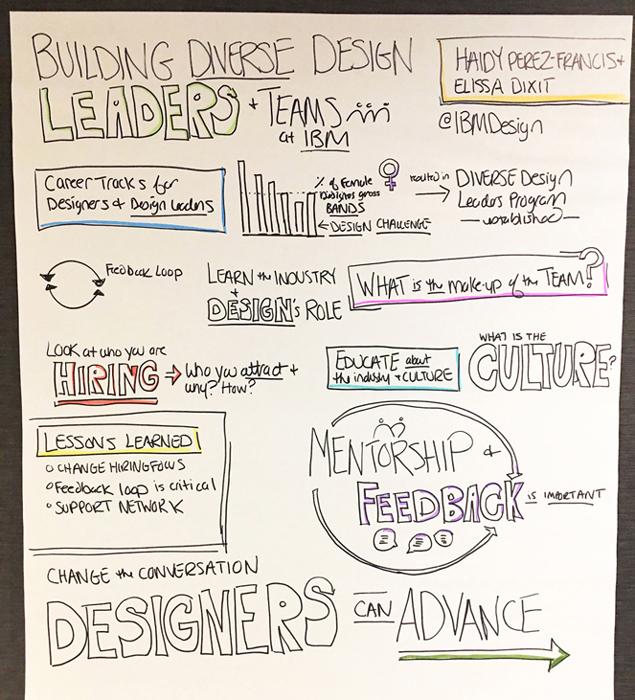 BUILDING DIVERSE DESIGN
LEADERS + TEAMS
at IBM
HAIDY PEREZ-FRANCIS +
ELISSA DIXIT
@IBMDesign
Career Tracks for
Designers + Design Leaders
% of Female
Designers across
BANDS
← DESIGN CHALLENGE
resulted in
→ DIVERSE Design
Leaders Program
— established —
Feedback Loop
LEARN the INDUSTRY
+
DESIGN's ROLE
WHAT is the make-up of the TEAM?
Look at who you are
HIRING → Who you attract +
why? How?
EDUCATE about
the industry + CULTURE
WHAT IS THE
CULTURE?
LESSONS LEARNED
○ CHANGE HIRING FOCUS
○ Feedback loop is critical
○ SUPPORT NETWORK
MENTORSHIP +
FEEDBACK IS IMPORTANT
CHANGE the CONVERSATION
DESIGNERS CAN ADVANCE